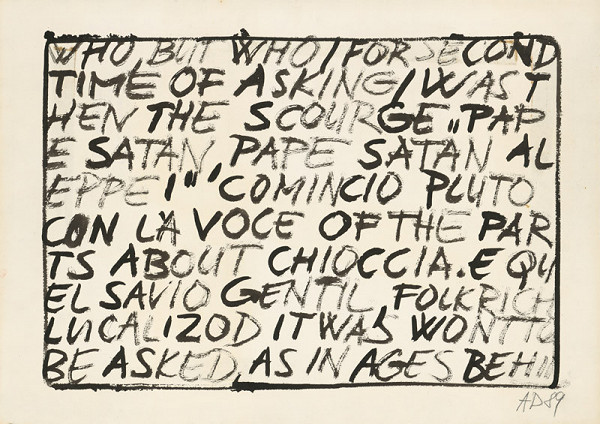 WHO, BUT WHO / FOR SECOND
TIME OF ASKING / WAS T
HEN THE SCOURGE „PAP
E SATAN, PAPE SATAN AL
EPPE!" COMINCIÒ PLUTO
CON LA VOCE OF THE PAR
TS ABOUT CHIOCCIA. E QU
EL SAVIO GENTIL FOLKRICH
LUCALIZOD IT WAS WONT TO
BE ASKED, AS IN AGES BEHIN
AD 89